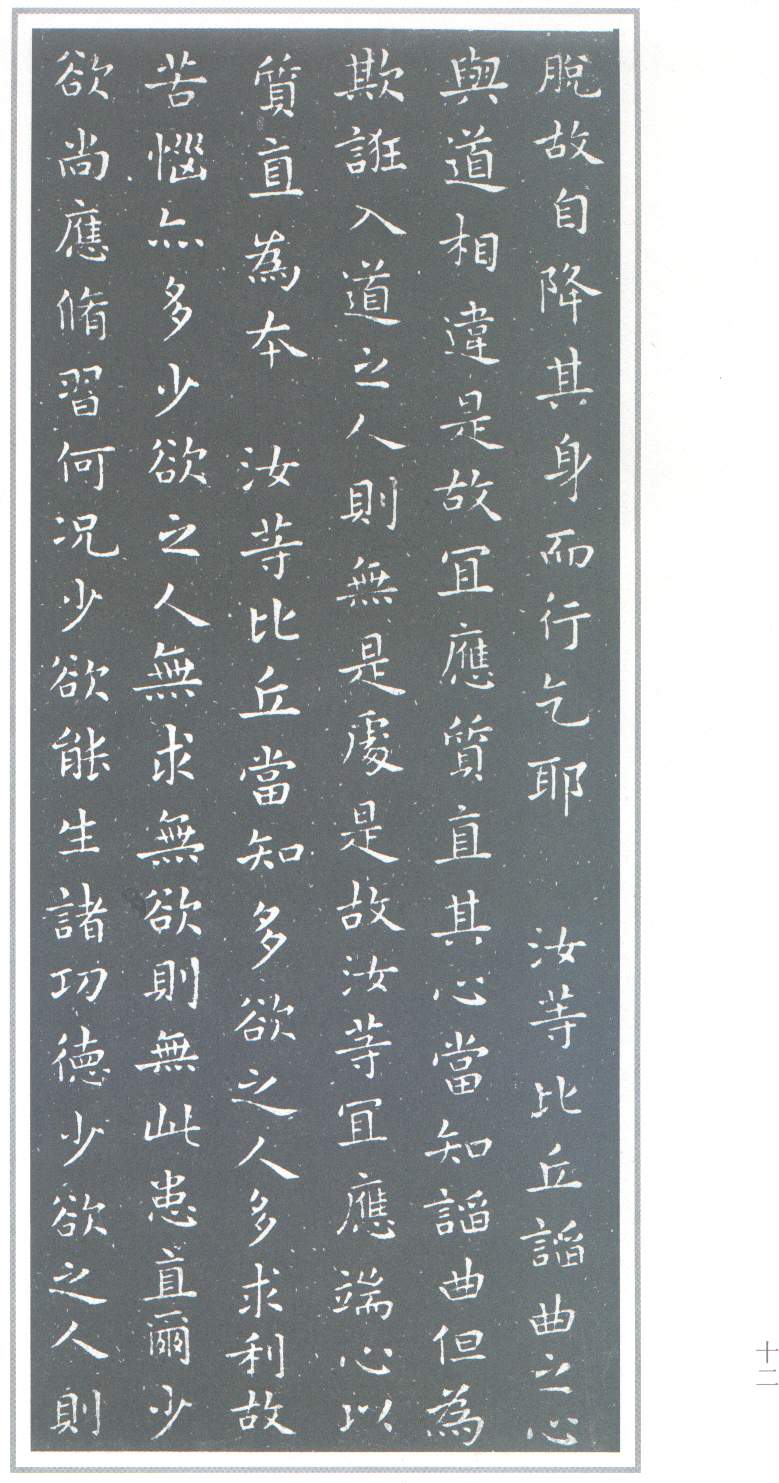 脫故自降其身而行乞耶　汝等比丘諂曲之心
與道相違是故宜應質直其心當知諂曲但為
欺誑入道之人則無是處是故汝等宜應端心以
質直為本　汝等比丘當知多欲之人多求利故
苦惱亦多少欲之人無求無欲則無此患直爾少
欲尚應脩習何況少欲能生諸功德少欲之人則
十二